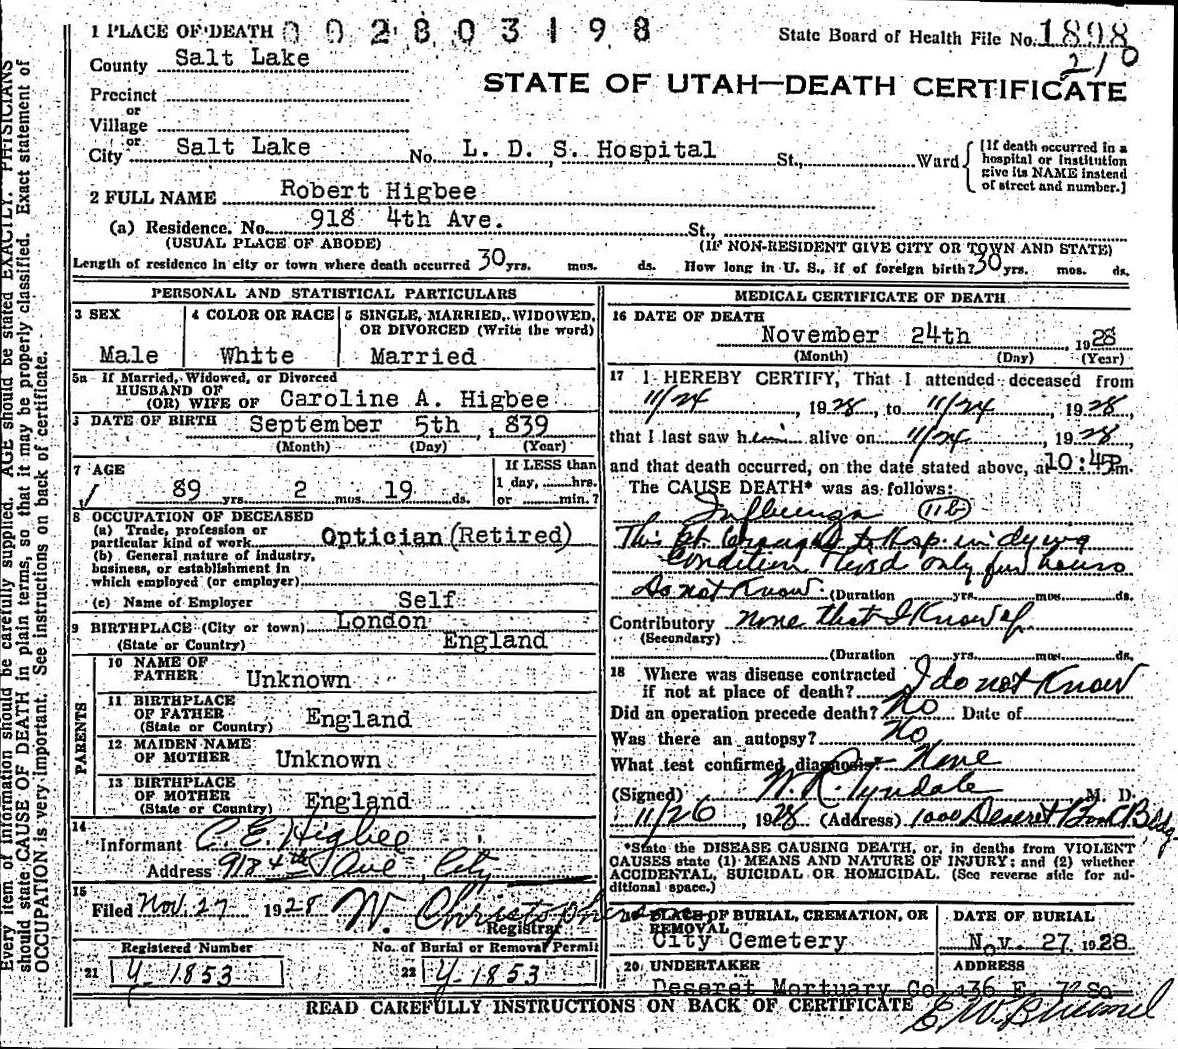 1 PLACE OF DEATH 002803198 State Board of Health File No. 1898
210
County Salt Lake
STATE OF UTAH—DEATH CERTIFICATE
Precinct
or
Village
or
City Salt Lake No. L. D. S. Hospital St., Ward
[If death occurred in a hospital or institution give its NAME instead of street and number.]
2 FULL NAME Robert Higbee
(a) Residence. No. 918 4th Ave. St.,
(USUAL PLACE OF ABODE) (IF NON-RESIDENT GIVE CITY OR TOWN AND STATE)
Length of residence in city or town where death occurred 30 yrs. mos. ds. How long in U. S., if of foreign birth? 30 yrs. mos. ds.
PERSONAL AND STATISTICAL PARTICULARS
3 SEX 4 COLOR OR RACE 5 SINGLE, MARRIED, WIDOWED,
OR DIVORCED (Write the word)
Male White Married
5a If Married, Widowed, or Divorced
HUSBAND OF
(OR) WIFE OF Caroline A. Higbee
DATE OF BIRTH September 5th , 1839
(Month) (Day) (Year)
7 AGE If LESS than
1 day, hrs.
89 yrs. 2 mos. 19 ds. or min.?
8 OCCUPATION OF DECEASED
(a) Trade, profession or
particular kind of work Optician (Retired)
(b) General nature of industry,
business, or establishment in
which employed (or employer)
(c) Name of Employer Self
9 BIRTHPLACE (City or town) London
(State or Country) England
PARENTS
10 NAME OF
FATHER Unknown
11 BIRTHPLACE
OF FATHER England
(State or Country)
12 MAIDEN NAME
OF MOTHER Unknown
13 BIRTHPLACE
OF MOTHER England
(State or Country)
14
Informant C. E. Higbee
Address 918 4th Ave City
15
Filed Nov. 27 1928 W. Christopherson
Registrar
Registered Number No. of Burial or Removal Permit
21 Y-1853 22 Y-1853
MEDICAL CERTIFICATE OF DEATH
16 DATE OF DEATH
November 24th , 1928
(Month) (Day) (Year)
17 I HEREBY CERTIFY, That I attended deceased from
11/24 , 1928, to 11/24 , 1928,
that I last saw him alive on 11/24 , 1928
and that death occurred, on the date stated above, at 10:45P m.
The CAUSE DEATH* was as follows:
Influenza 11b
This pt. brought to Hosp. in dying
condition lived only few hours
Do not Know. (Duration yrs. mos. ds.
Contributory none that I know of
(Secondary)
(Duration yrs. mos. ds.
18 Where was disease contracted
if not at place of death? I do not know
Did an operation precede death? No Date of
Was there an autopsy? No
What test confirmed diagnosis? None
(Signed) W. R. Tyndale M. D.
11/26 , 1928 (Address) 1000 Deseret Bank Bldg.
*State the DISEASE CAUSING DEATH, or, in deaths from VIOLENT
CAUSES state (1) MEANS AND NATURE OF INJURY; and (2) whether
ACCIDENTAL, SUICIDAL OR HOMICIDAL. (See reverse side for ad-
ditional space.)
PLACE OF BURIAL, CREMATION, OR REMOVAL DATE OF BURIAL
City Cemetery Nov. 27 1928
20 UNDERTAKER ADDRESS
Deseret Mortuary Co. 36 E. 7 So
READ CAREFULLY INSTRUCTIONS ON BACK OF CERTIFICATE
Every item of information should be carefully supplied. AGE should be stated EXACTLY. PHYSICIANS
should state CAUSE OF DEATH in plain terms, so that it may be properly classified. Exact statement of
OCCUPATION is very important. See instructions on back of certificate.